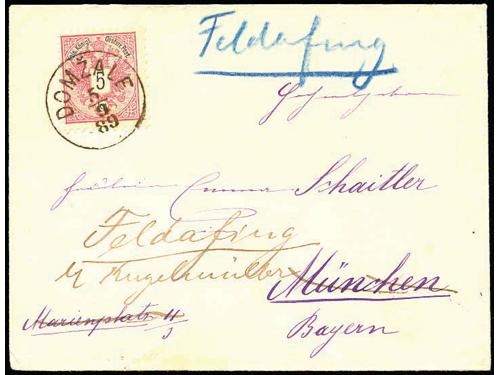 Feldafing
DOMŽALE
5
5
89
Fräulein Emma Schaitler
Feldafing
München
Marienplatz 11
Bayern